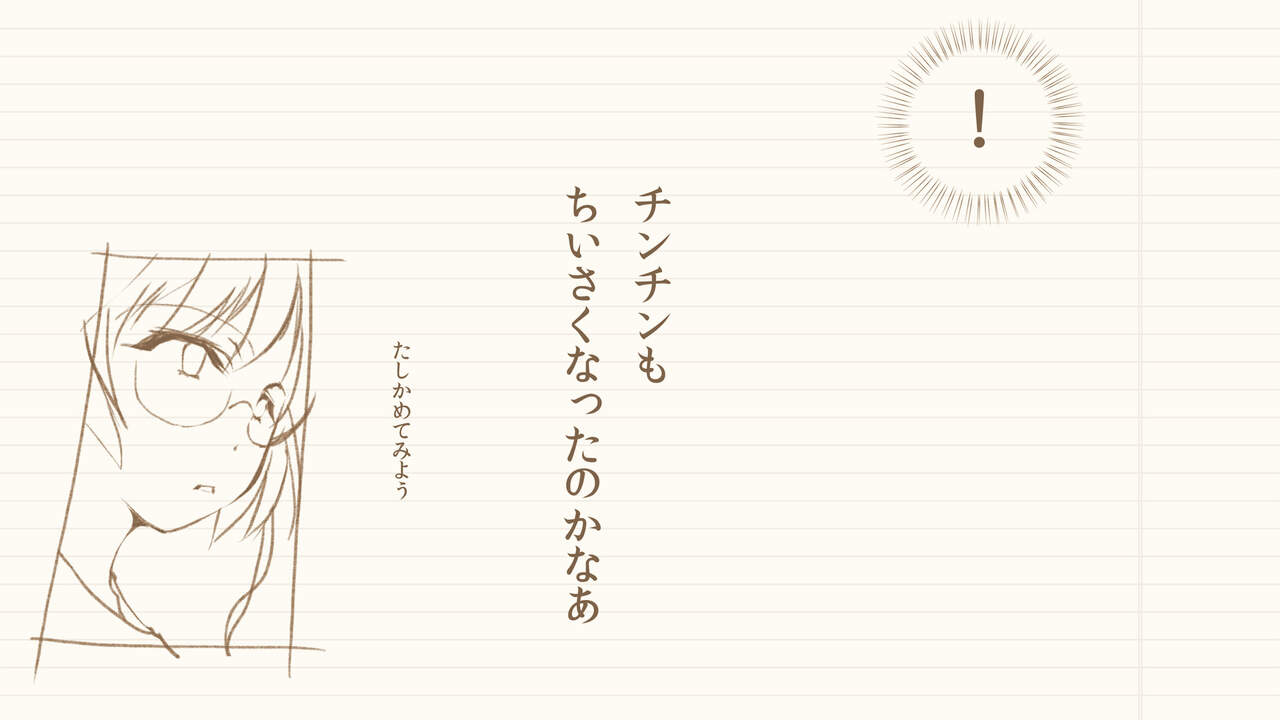 ！
チンチンも
ちいさくなったのかなあ
たしかめてみよう